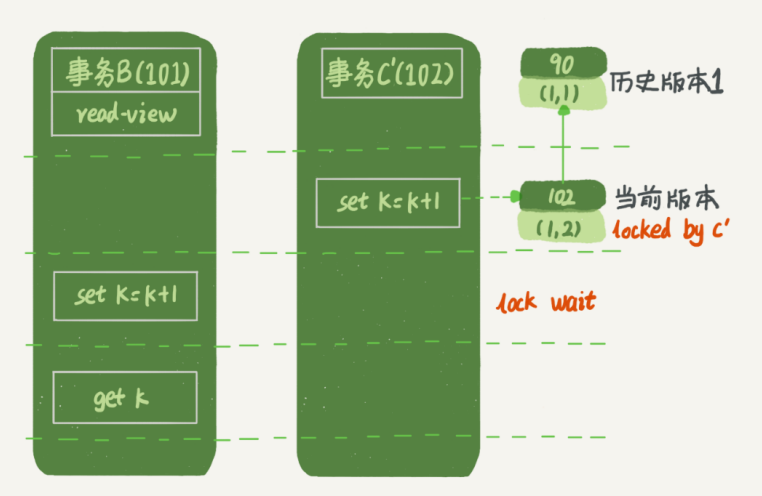 事务B(101)
read-view
set k=k+1
get k
事务C'(102)
set k=k+1
90
(1,1)
历史版本1
102
(1,2)
当前版本
locked by c'
lock wait